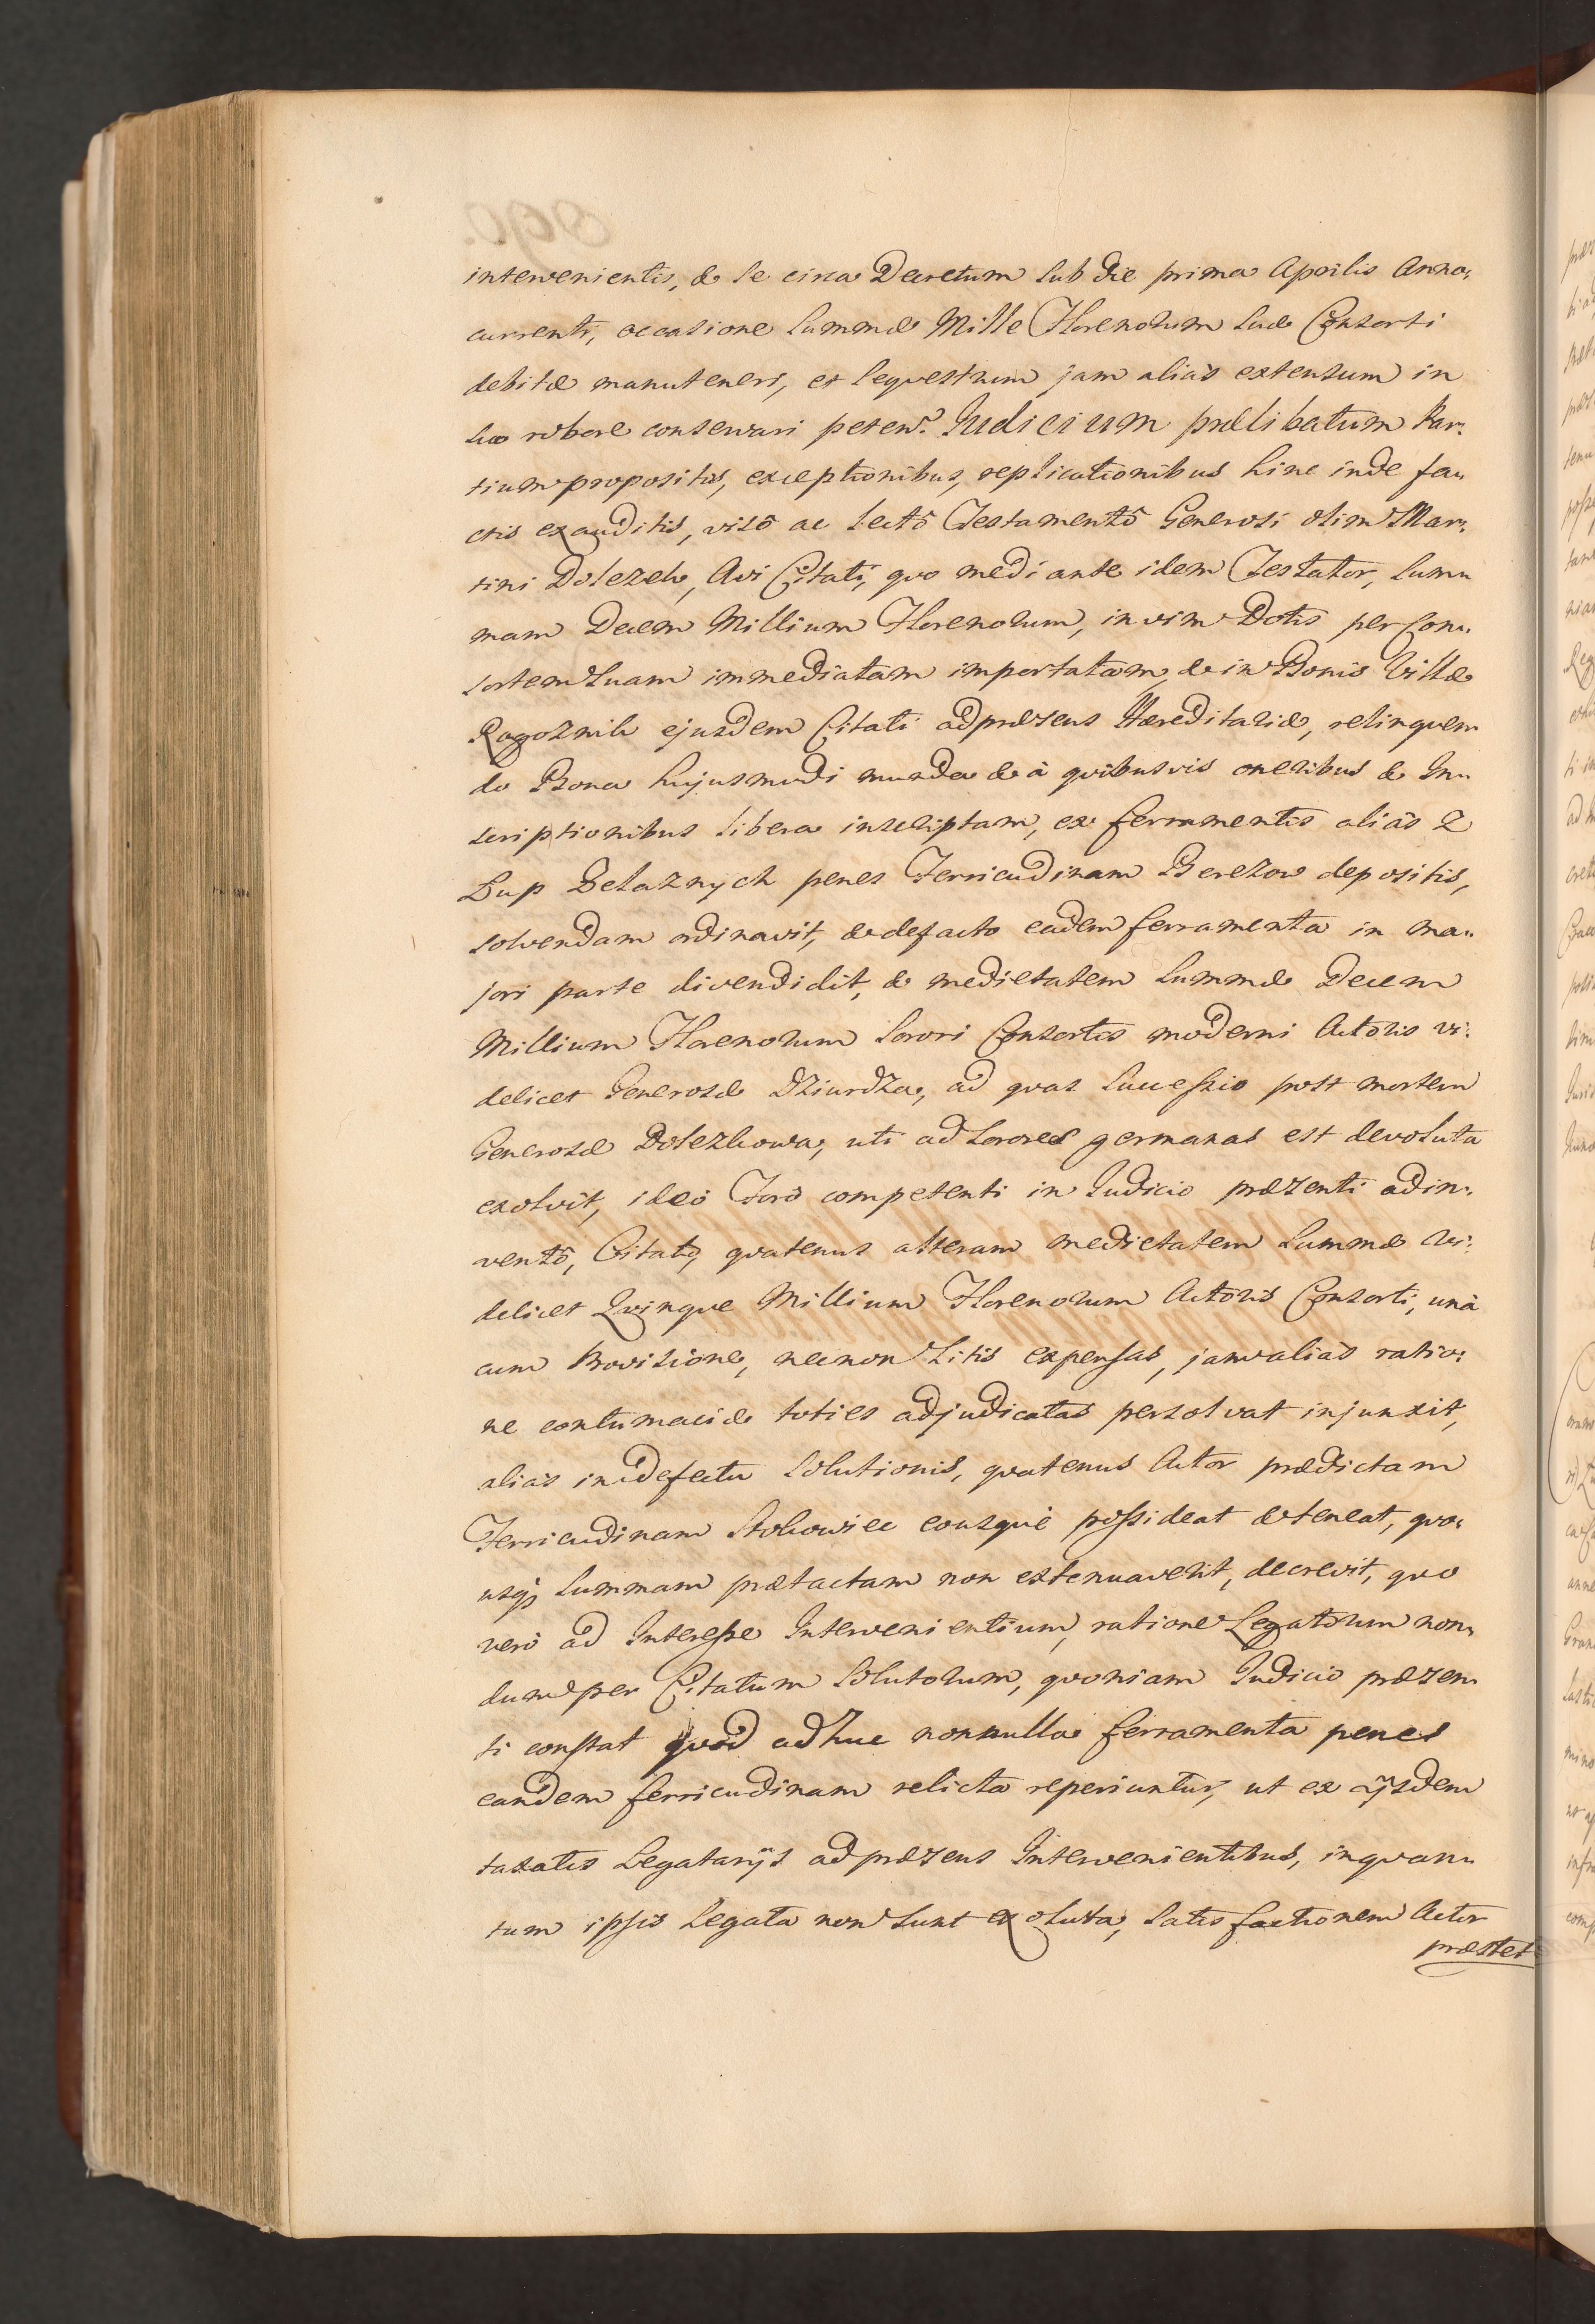 intervenientis, & se circa Decretum sub die prima Aprilis Anno,
currenti, occasione Summæ Mille Florenorum suæ Consorti
debitæ manuteneri, et sequestrum jam aliàs extensum in
suo robore conservari peten. Judicium prælibatum Par:
tium propositis, exceptionibus, replicationibus hinc inde fa„
ctis exauditis, visô ac lectô Testamentô Generosi olim Mar:
tini Dolezek, Avi Citati, quo mediante idem Testator, Sum„
mam Decem Millium Florenorum, in vim Dotis per Con„
sortem suam immediatam importatam, & in Bonis Villæ
Rogoznik ejusdem Citati ad præsens Hæreditariæ, relinquen„
do Bona hujusmodi munda & à quibusvis oneribus & In„
scriptionibus libera inscriptam, ex ferramentis aliàs Z
Kup Zelaznych penes Ferricudinam Berezow depositis,
solvendam ordinavit, & defacto eadem ferramenta in ma„
jori parte divendidit, & medietatem Summæ Decem
Millium Florenorum Sorori Consortis moderni Actoris vi:
delicet Generosæ Dziurdza, ad quas Successio post mortem
Generosæ Dolezkowa, uti ad Sorores germanas est devoluta
exolvit, ideò Forô competenti in Judicio præsenti adin:
ventô, Citatq quatenus alteram medietatem Summæ vi:
delicet Quinque Millium Florenorum Actoris Consorti, unà
cum Provisione, necnon Litis expensas, jam aliàs ratio:
ne contumaciæ toties adjudicatas persolvat injunxit,
aliàs in defectu Solutionis, quatenus Actor prædictam
Ferricudinam Stokowiec eousquè possideat & teneat, quo:
usq; Summam prætactam non extenuaverit, decrevit, quo
verò ad Interesse Intervenientium, ratione Legatorum non„
dum per Citatum Solutorum, quoniam Judicio præsen„
ti constat quod adhuc nonnulla ferramenta penes
eandem ferricudinam relicta reperiuntur, ut ex ijsdem
taxatis Legatarijs ad præsens Intervenientibus, inquan„
tum ipsis Legata non sunt exoluta, satisfactionem Actor
præstet